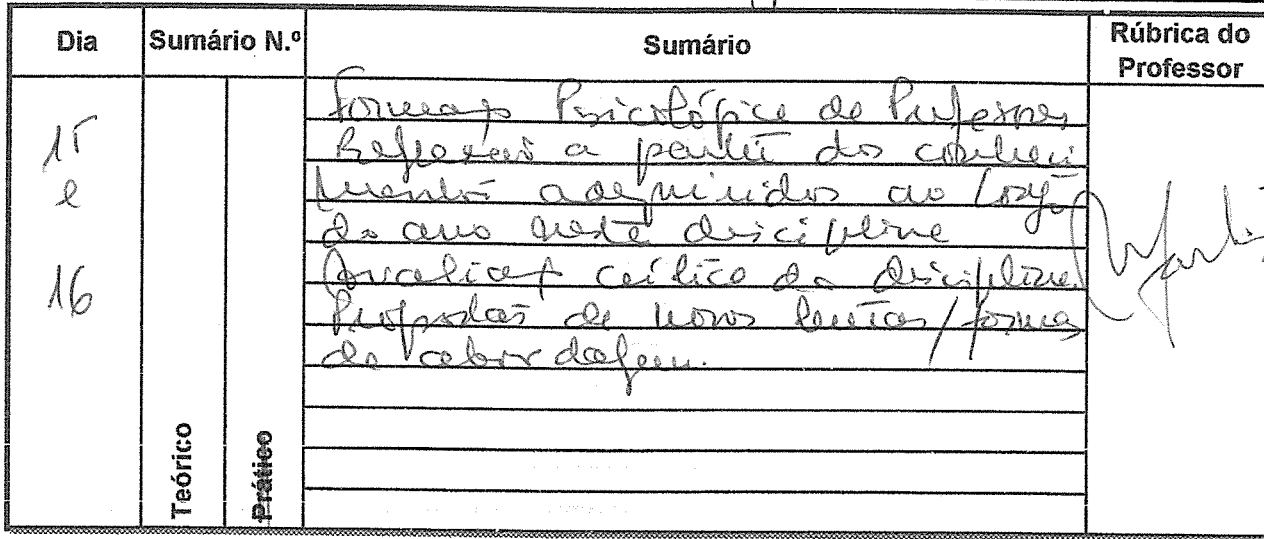 Dia Sumário N.º Sumário Rúbrica do Professor
15 e 16
Formação Psicológica de Professores
Reflexão a partir dos conheci
mentos adquiridos ao longo
do ano nesta disciplina
Avaliação crítica da disciplina
Propostas de novos temas/formas
de abordagem.
Teórico
Prático